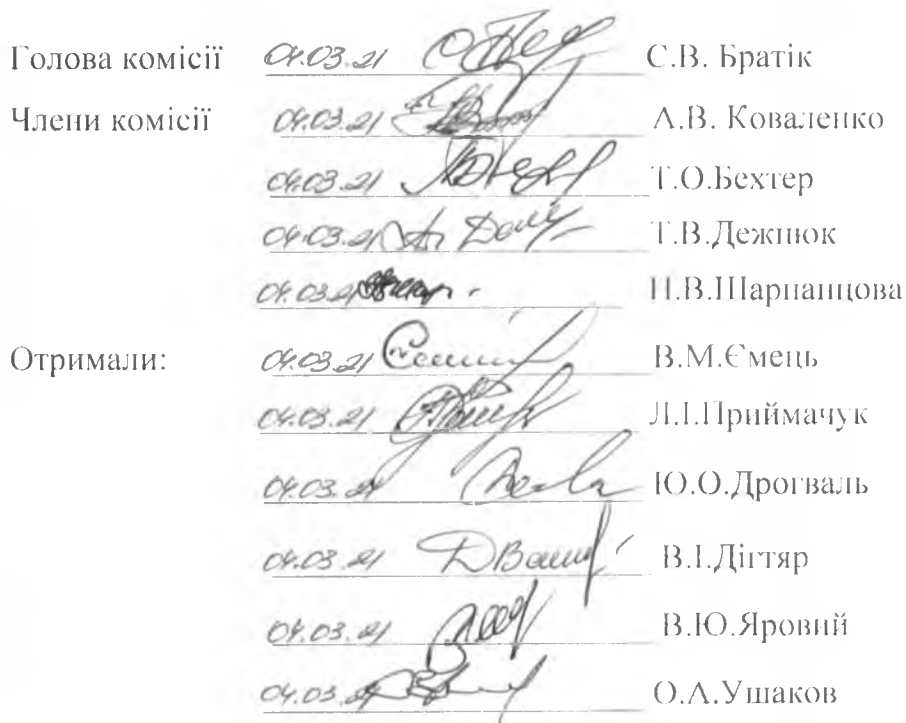 Голова комісії 04.03.21 С.В. Братік
Члени комісії 04.03.21 А.В. Коваленко
04.03.21 Т.О.Бехтер
04.03.21 Т.В.Дежнюк
04.03.21 Н.В.Шарпанцова
Отримали: 04.03.21 В.М.Ємець
04.03.21 Л.І.Приймачук
04.03.21 Ю.О.Дрогваль
04.03.21 В.І.Дігтяр
04.03.21 В.Ю.Яровий
04.03.21 О.А.Ушаков